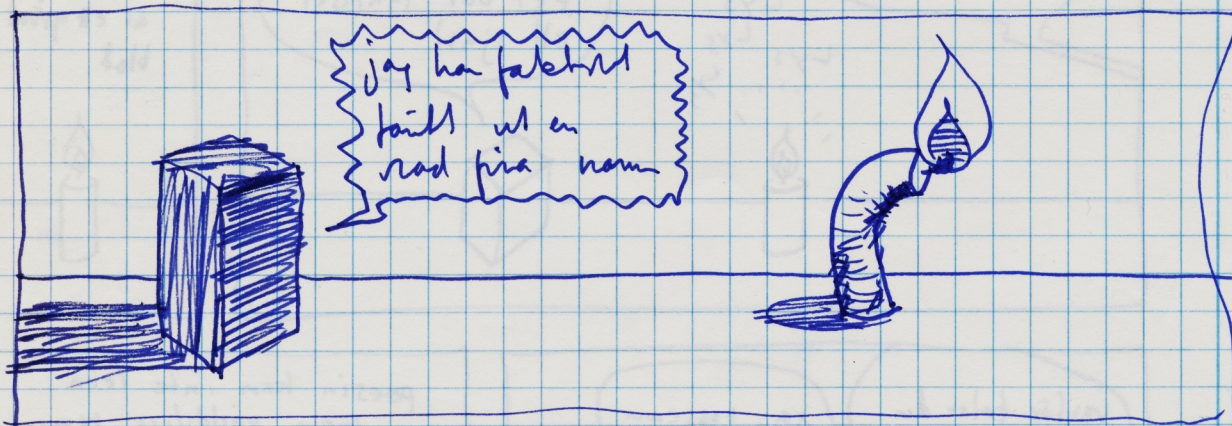 jag har faktiskt
tänkt ut en
rad fina namn